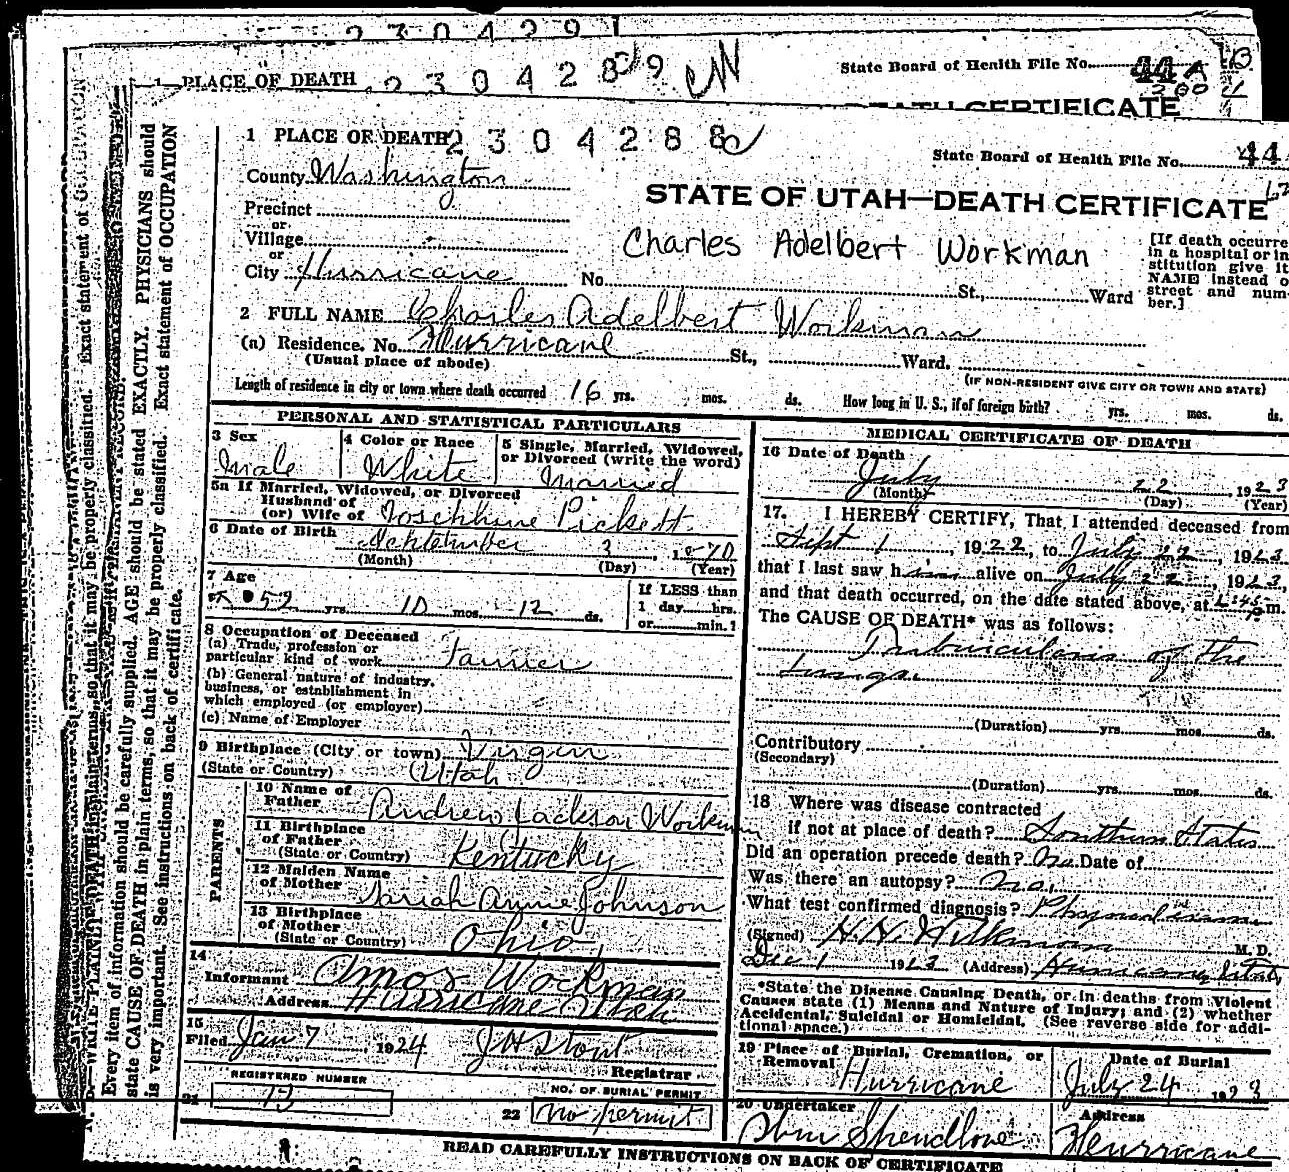 2 3 0 4 2 9 1
1 PLACE OF DEATH 2 3 0 4 2 8 9
State Board of Health File No. 44 A
DEATH CERTIFICATE
1 PLACE OF DEATH 2 3 0 4 2 8 8
State Board of Health File No. 44
County Washington
STATE OF UTAH—DEATH CERTIFICATE
Precinct
or
Village
or
City Hurricane No. St., Ward
Charles Adelbert Workman
[If death occurre
in a hospital or in
stitution give it
NAME instead o
street and num-
ber.]
2 FULL NAME Charles Adelbert Workman
(a) Residence. No. Hurricane St., Ward.
(Usual place of abode)
(IF NON-RESIDENT GIVE CITY OR TOWN AND STATE)
Length of residence in city or town where death occurred 16 yrs. mos. ds. How long in U. S., if of foreign birth? yrs. mos. ds.
PERSONAL AND STATISTICAL PARTICULARS
3 Sex Male
4 Color or Race White
5 Single, Married, Widowed,
or Divorced (write the word)
Married
5a If Married, Widowed, or Divorced
Husband of
(or) Wife of Joschhine Pickett
6 Date of Birth September 3, 1870
(Month) (Day) (Year)
7 Age 52 yrs. 10 mos. 12 ds.
If LESS than
1 day hrs.
or min.?
8 Occupation of Deceased
(a) Trade, profession or
particular kind of work Farmer
(b) General nature of industry,
business, or establishment in
which employed (or employer)
(c) Name of Employer
9 Birthplace (City or town) Virgin
(State or Country) Utah
PARENTS
10 Name of
Father Andrew Jackson Workman
11 Birthplace
of Father
(State or Country) Kentucky
12 Maiden Name
of Mother Sariah Annie Johnson
13 Birthplace
of Mother
(State or Country) Ohio
14
Informant Amos Workman
Address Hurricane Utah
15
Filed Jan 7, 1924 J H Stout
Registrar
REGISTERED NUMBER
21
NO. OF BURIAL PERMIT
22 no permit
MEDICAL CERTIFICATE OF DEATH
16 Date of Death
July 22, 1923
(Month) (Day) (Year)
17. I HEREBY CERTIFY, That I attended deceased from
Sept 1, 1922, to July 22, 1923
that I last saw him alive on July 22, 1923,
and that death occurred, on the date stated above, at m.
The CAUSE OF DEATH* was as follows:
Tubuculosis of the
Lungs.
(Duration) yrs. mos. ds.
Contributory
(Secondary)
(Duration) yrs. mos. ds.
18 Where was disease contracted
If not at place of death? Southern States
Did an operation precede death? No Date of
Was there an autopsy? No.
What test confirmed diagnosis?
(Signed) M. D.
Dec 1 1923 (Address) Hurricane Utah
*State the Disease Causing Death, or in deaths from Violent
Causes state (1) Means and Nature of Injury; and (2) whether
Accidental, Suicidal or Homicidal. (See reverse side for addi-
tional space.)
19 Place of Burial, Cremation, or
Removal
Hurricane
Date of Burial
July 24 1923
20 Undertaker
Wm Spendlove
Address
Hurricane
READ CAREFULLY INSTRUCTIONS ON BACK OF CERTIFICATE
Every item of information should be carefully supplied. AGE should be stated EXACTLY. PHYSICIANS should
state CAUSE OF DEATH in plain terms, so that it may be properly classified. Exact statement of OCCUPATION
is very important. See instructions on back of certificate.